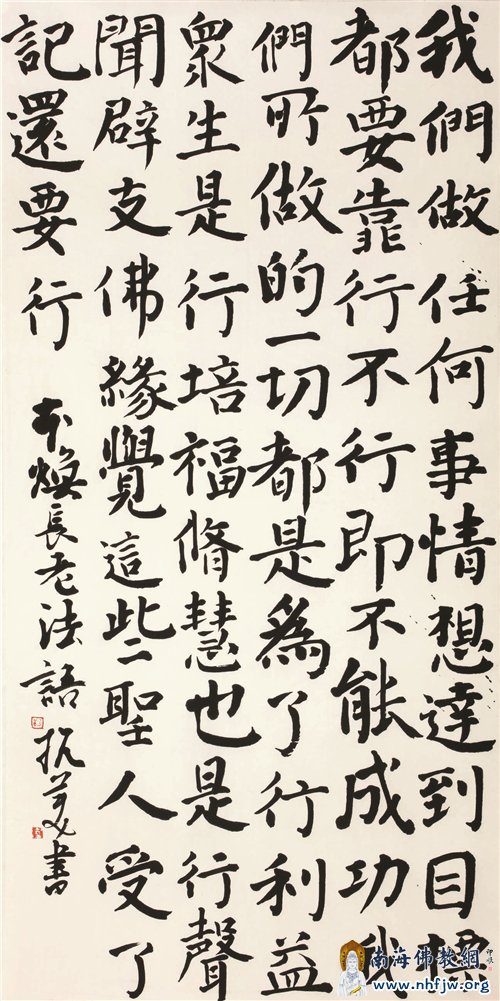 我們做任何事情想達到目標
都要靠行不行即不能成功我
們所做的一切都是為了行利益
眾生是行培福脩慧也是行聲
聞辟支佛緣覺這些聖人受了
記還要行
本煥長老法語
書
南海佛教網
www.nhfjw.org